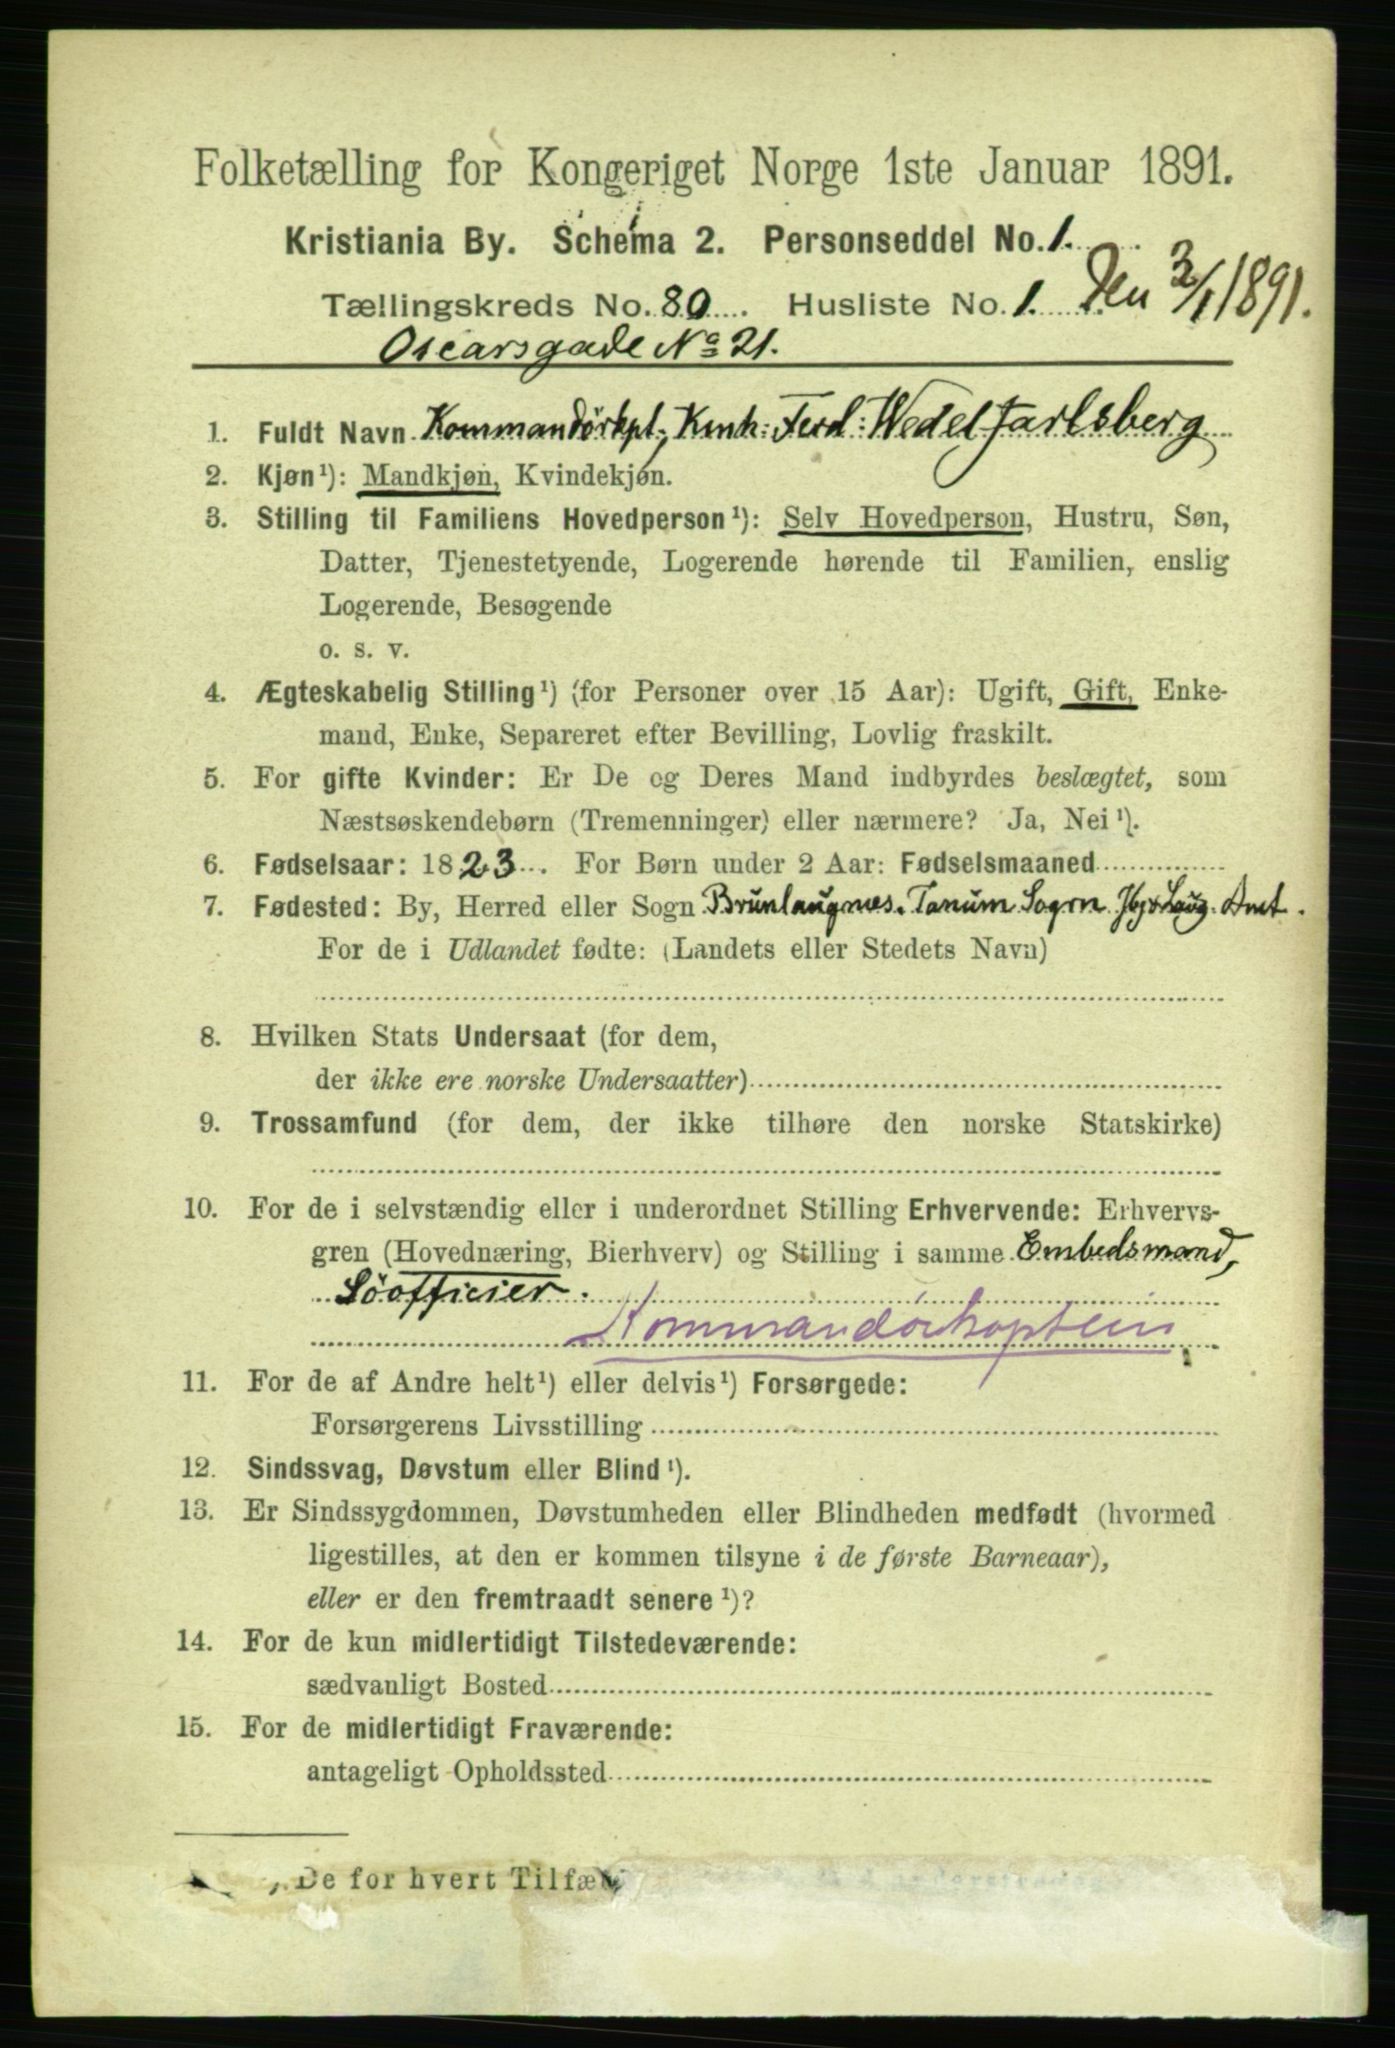 Folketælling for Kongeriget Norge 1ste Januar 1891.
Kristiania By. Schema 2. Personseddel No. 1.
Tællingskreds No. 80. Husliste No. 1. Den 3/1 1891.
Oscarsgade No 21.
1. Fuldt Navn Kommandørkpt., Kmh: Ferd: Wedel Jarlsberg
2. Kjøn¹): Mandkjøn, Kvindekjøn.
3. Stilling til Familiens Hovedperson¹): Selv Hovedperson, Hustru, Søn,
Datter, Tjenestetyende, Logerende hørende til Familien, enslig
Logerende, Besøgende
o. s. v.
4. Ægteskabelig Stilling¹) (for Personer over 15 Aar): Ugift, Gift, Enke-
mand, Enke, Separeret efter Bevilling, Lovlig fraskilt.
5. For gifte Kvinder: Er De og Deres Mand indbyrdes beslægtet, som
Næstsøskendebørn (Tremenninger) eller nærmere? Ja, Nei¹).
6. Fødselsaar: 1823. For Børn under 2 Aar: Fødselsmaaned
7. Fødested: By, Herred eller Sogn Brunlaugnæs. Tanum Sogn. J. & Laug. Amt.
For de i Udlandet fødte: (Landets eller Stedets Navn)
8. Hvilken Stats Undersaat (for dem,
der ikke ere norske Undersaatter)
9. Trossamfund (for dem, der ikke tilhøre den norske Statskirke)
10. For de i selvstændig eller i underordnet Stilling Erhvervende: Erhvervs-
gren (Hovednæring, Bierhverv) og Stilling i samme Embedsmand,
Søofficier.
Kommandørkaptein
11. For de af Andre helt¹) eller delvis¹) Forsørgede:
Forsørgerens Livsstilling
12. Sindssvag, Døvstum eller Blind¹).
13. Er Sindssygdommen, Døvstumheden eller Blindheden medfødt (hvormed
ligestilles, at den er kommen tilsyne i de første Barneaar),
eller er den fremtraadt senere¹)?
14. For de kun midlertidigt Tilstedeværende:
sædvanligt Bosted
15. For de midlertidigt Fraværende:
antageligt Opholdssted
De for hvert